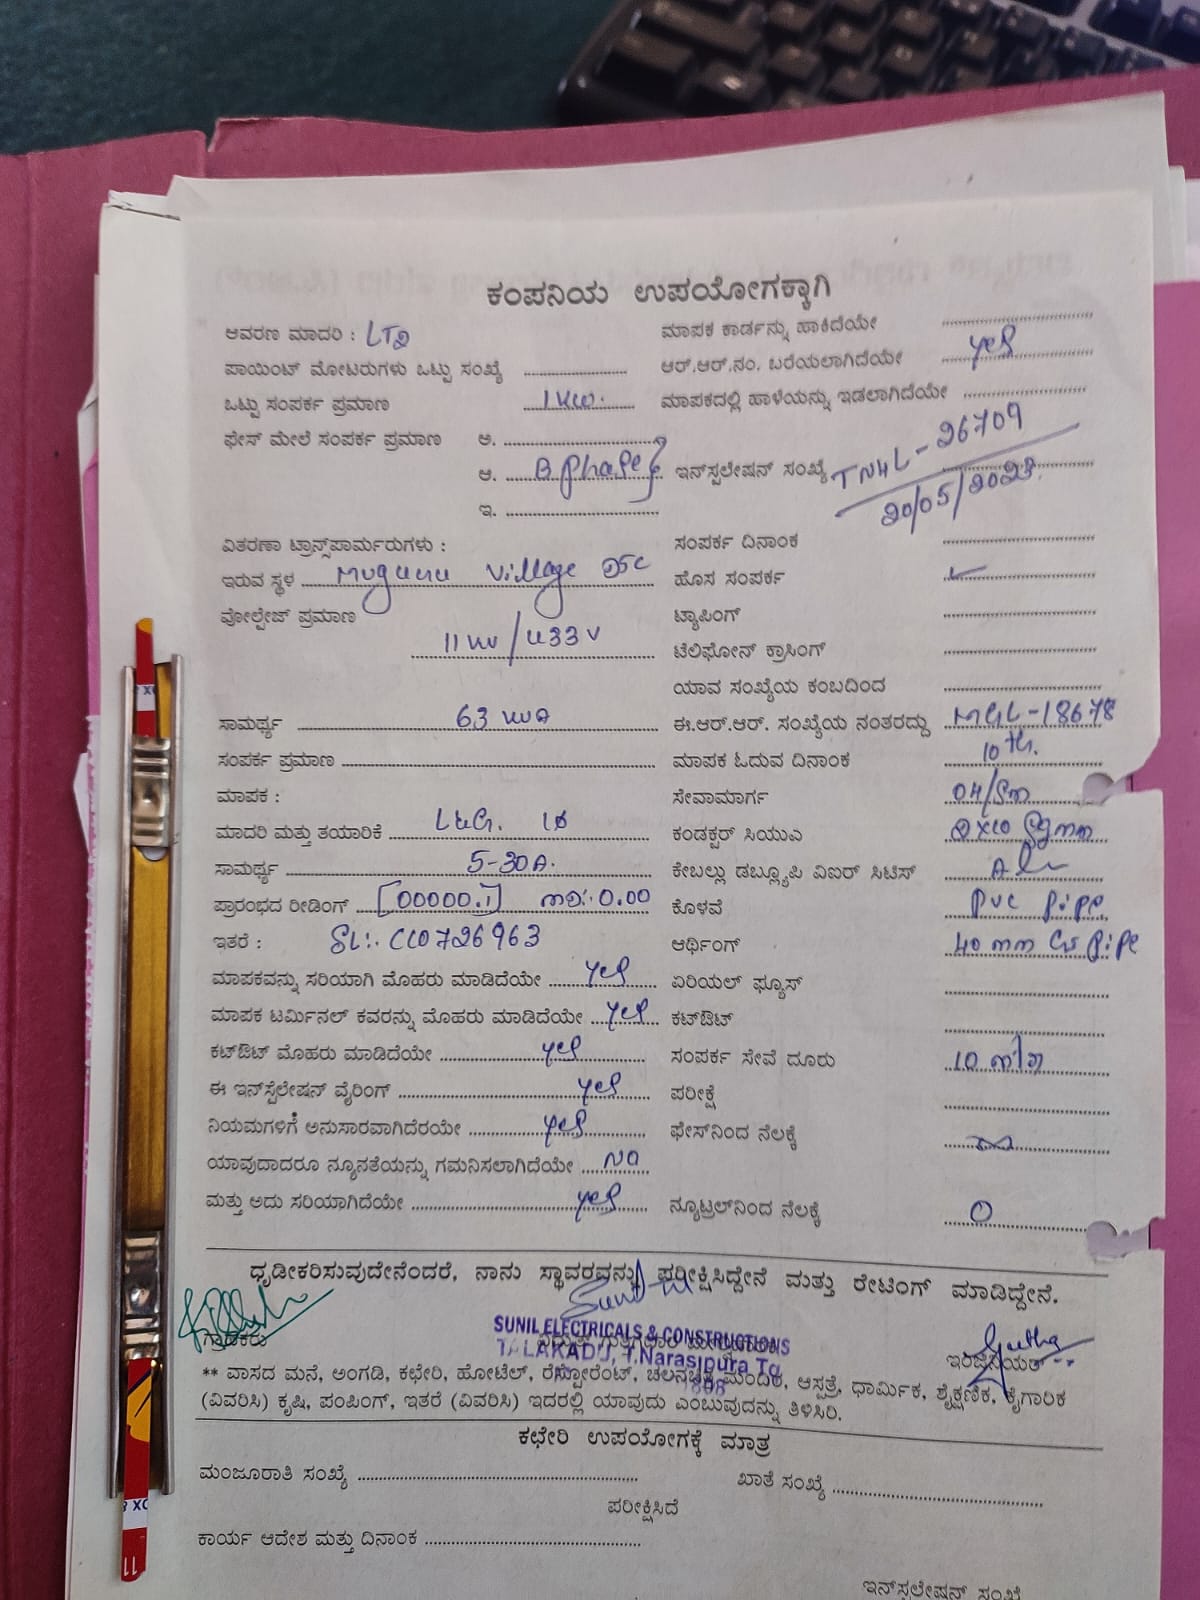 ಕಂಪನಿಯ ಉಪಯೋಗಕ್ಕಾಗಿ
ಆವರಣ ಮಾದರಿ : LT2 ಮಾಪಕ ಕಾರ್ಡನ್ನು ಹಾಕಿದೆಯೇ
ಪಾಯಿಂಟ್ ಮೋಟರುಗಳು ಒಟ್ಟು ಸಂಖ್ಯೆ ಆರ್.ಆರ್.ನಂ. ಬರೆಯಲಾಗಿದೆಯೇ yes
ಒಟ್ಟು ಸಂಪರ್ಕ ಪ್ರಮಾಣ 1 KW. ಮಾಪಕದಲ್ಲಿ ಹಾಳೆಯನ್ನು ಇಡಲಾಗಿದೆಯೇ
ಫೇಸ್ ಮೇಲೆ ಸಂಪರ್ಕ ಪ್ರಮಾಣ ಅ.
ಆ. B phase ಇನ್ಸ್ಪಲೇಷನ್ ಸಂಖ್ಯೆ TNHL-26709
20/05/2023.
ಇ.
ವಿತರಣಾ ಟ್ರಾನ್ಸ್‌ಪಾರ್ಮರುಗಳು : ಸಂಪರ್ಕ ದಿನಾಂಕ
ಇರುವ ಸ್ಥಳ Muguru Village ಹೊಸ ಸಂಪರ್ಕ ✓
ವೋಲ್ಟೇಜ್ ಪ್ರಮಾಣ ಟ್ಯಾಪಿಂಗ್
11 kv/433 v ಟೆಲಿಫೋನ್ ಕ್ರಾಸಿಂಗ್
ಯಾವ ಸಂಖ್ಯೆಯ ಕಂಬದಿಂದ
ಸಾಮರ್ಥ್ಯ 63 KVA ಈ.ಆರ್.ಆರ್. ಸಂಖ್ಯೆಯ ನಂತರದ್ದು MGL-18678
ಸಂಪರ್ಕ ಪ್ರಮಾಣ ಮಾಪಕ ಓದುವ ದಿನಾಂಕ 10th.
ಮಾಪಕ : ಸೇವಾಮಾರ್ಗ OH/Sm
ಮಾದರಿ ಮತ್ತು ತಯಾರಿಕೆ L&G. 1Ø ಕಂಡಕ್ಟರ್ ಸಿಯುಎ 2x10 Sqmm
ಸಾಮರ್ಥ್ಯ 5-30A. ಕೇಬಲ್ಲು ಡಬ್ಲ್ಯೂಪಿ ವಿಐರ್ ಸಿಟಿಸ್
ಪ್ರಾರಂಭದ ರೀಡಿಂಗ್ [00000.1] MD:.0.00 ಕೊಳವೆ Pvc pipe
ಇತರೆ : SL:. CC0726963 ಆರ್ಥಿಂಗ್ 40 mm GI pipe
ಮಾಪಕವನ್ನು ಸರಿಯಾಗಿ ಮೊಹರು ಮಾಡಿದೆಯೇ yes ಏರಿಯಲ್ ಫ್ಯೂಸ್
ಮಾಪಕ ಟರ್ಮಿನಲ್ ಕವರನ್ನು ಮೊಹರು ಮಾಡಿದೆಯೇ yes ಕಟ್‌ಔಟ್
ಕಟ್‌ಔಟ್ ಮೊಹರು ಮಾಡಿದೆಯೇ yes ಸಂಪರ್ಕ ಸೇವೆ ದೂರು 10 mtr
ಈ ಇನ್‌ಸ್ಟೆಲೇಷನ್ ವೈರಿಂಗ್ yes ಪರೀಕ್ಷೆ
ನಿಯಮಗಳಿಗೆ ಅನುಸಾರವಾಗಿದೆರಯೇ yes ಫೇಸ್‌ನಿಂದ ನೆಲಕ್ಕೆ ∞
ಯಾವುದಾದರೂ ನ್ಯೂನತೆಯನ್ನು ಗಮನಿಸಲಾಗಿದೆಯೇ NO
ಮತ್ತು ಅದು ಸರಿಯಾಗಿದೆಯೇ yes ನ್ಯೂಟ್ರಲ್‌ನಿಂದ ನೆಲಕ್ಕೆ 0
ಧೃಡೀಕರಿಸುವುದೇನೆಂದರೆ, ನಾನು ಸ್ಥಾವರವನ್ನು ಪರೀಕ್ಷಿಸಿದ್ದೇನೆ ಮತ್ತು ರೇಟಿಂಗ್ ಮಾಡಿದ್ದೇನೆ.
SUNIL ELECTRICALS & CONSTRUCTIONS
ಗ್ರಾಹಕರು TALAKADU, T.Narasipura Tq Geetha
** ವಾಸದ ಮನೆ, ಅಂಗಡಿ, ಕಛೇರಿ, ಹೋಟೆಲ್, ರೆಸ್ಟೋರೆಂಟ್, ಚಲನಚಿತ್ರ ಮಂದಿರ, ಆಸ್ಪತ್ರೆ, ಧಾರ್ಮಿಕ, ಶೈಕ್ಷಣಿಕ, ಕೈಗಾರಿಕ
(ವಿವರಿಸಿ) ಕೃಷಿ, ಪಂಪಿಂಗ್, ಇತರೆ (ವಿವರಿಸಿ) ಇದರಲ್ಲಿ ಯಾವುದು ಎಂಬುವುದನ್ನು ತಿಳಿಸಿರಿ.
ಕಛೇರಿ ಉಪಯೋಗಕ್ಕೆ ಮಾತ್ರ
ಮಂಜೂರಾತಿ ಸಂಖ್ಯೆ ಖಾತೆ ಸಂಖ್ಯೆ
ಪರೀಕ್ಷಿಸಿದೆ
ಕಾರ್ಯ ಆದೇಶ ಮತ್ತು ದಿನಾಂಕ
ಇನ್‌ಸ್ಟಲೇಷನ್ ಸಂಖ್ಯೆ